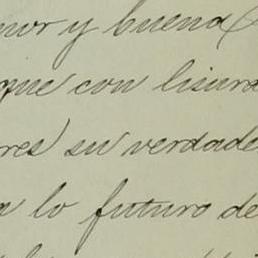 mor y buena
que con lisura
res su verdade
a lo futuro de